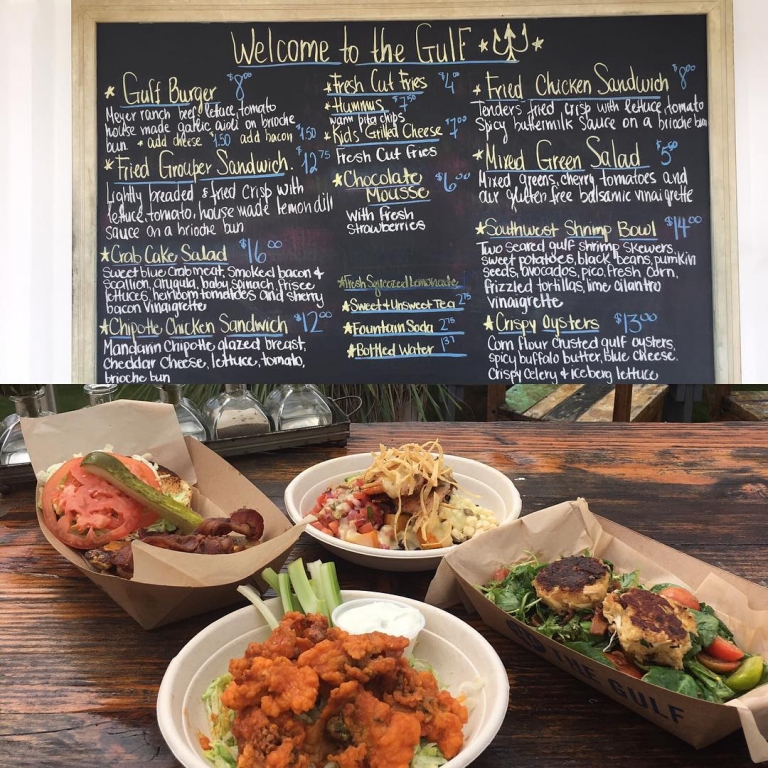 Welcome to the Gulf
Gulf Burger $8.00
Meyer ranch beef, lettuce, tomato
house made garlic aioli on brioche
bun * add cheese $1.50 add bacon $1.50
Fried Grouper Sandwich. $12.75
Lightly breaded & fried crisp with
lettuce, tomato, house made lemon dill
sauce on a brioche bun
Crab Cake Salad $16.00
Sweet blue crab meat, smoked bacon &
scallion, arugula, baby spinach, frisee
lettuces, heirloom tomatoes and sherry
bacon vinaigrette
Chipotle Chicken Sandwich $12.00
Mandarin Chipotle glazed breast,
cheddar cheese, lettuce, tomato,
brioche bun
Fresh Cut Fries $4.00
Hummus $7.50
warm pita chips
Kids Grilled Cheese $7.00
Fresh Cut Fries
Chocolate
Mousse $6.00
With fresh
strawberries
Fresh Squeezed Lemonade
Sweet & Unsweet Tea 2.75
Fountain Soda 2.75
Bottled Water
Fried Chicken Sandwich $8.00
Tenders fried crisp with lettuce, tomato
Spicy buttermilk sauce on a brioche bun
Mixed Green Salad $5.00
Mixed greens, cherry tomatoes and
our gluten free balsamic vinaigrette
Southwest Shrimp Bowl $14.00
Two seared gulf shrimp skewers,
sweet potatoes, black beans, pumkin
seeds, avocados, pico, fresh corn,
frizzled tortillas, lime cilantro
vinaigrette
Crispy Oysters $13.00
Corn flour crusted gulf oysters,
spicy buffalo butter, blue cheese.
Crispy Celery & iceberg lettuce
THE GULF